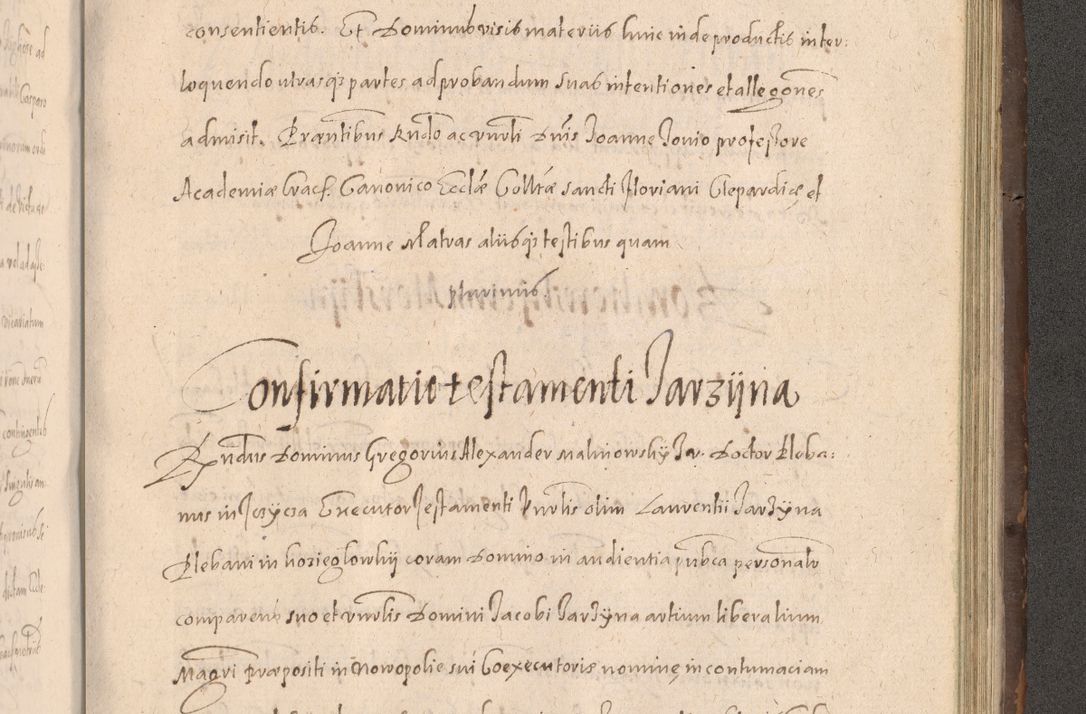 consentientis. Et Dominus visis materiis huic inde productis inter:
loquendo utrasqz partes ad probandum suas intentiones et allegones
admisit. Prantibus Rndo ac vnrli Dnis Joanne Jonio professore
Academiæ Cracf. Canonico Ecclæ Colltæ sancti Floriani Clepardiæ et
Joanne Matras aliisqz testibus quam
plurimis.
Confirmatio testamenti Jarzÿna
Rndus Dominus Gregorius Alexander Malinowskÿ Doctor Pleba:
nus in Executor Testamenti vnrlis olim Laurentii Jarzÿna
Plebani in kozieglowkÿ coram Domino in audientia pubca personalr
comparens suo et vnrlis Domini Jacobi Jarzÿna artium liberalium
Magri præpositi in Nowopolie sui Coexecutoris nominę in contumaciam